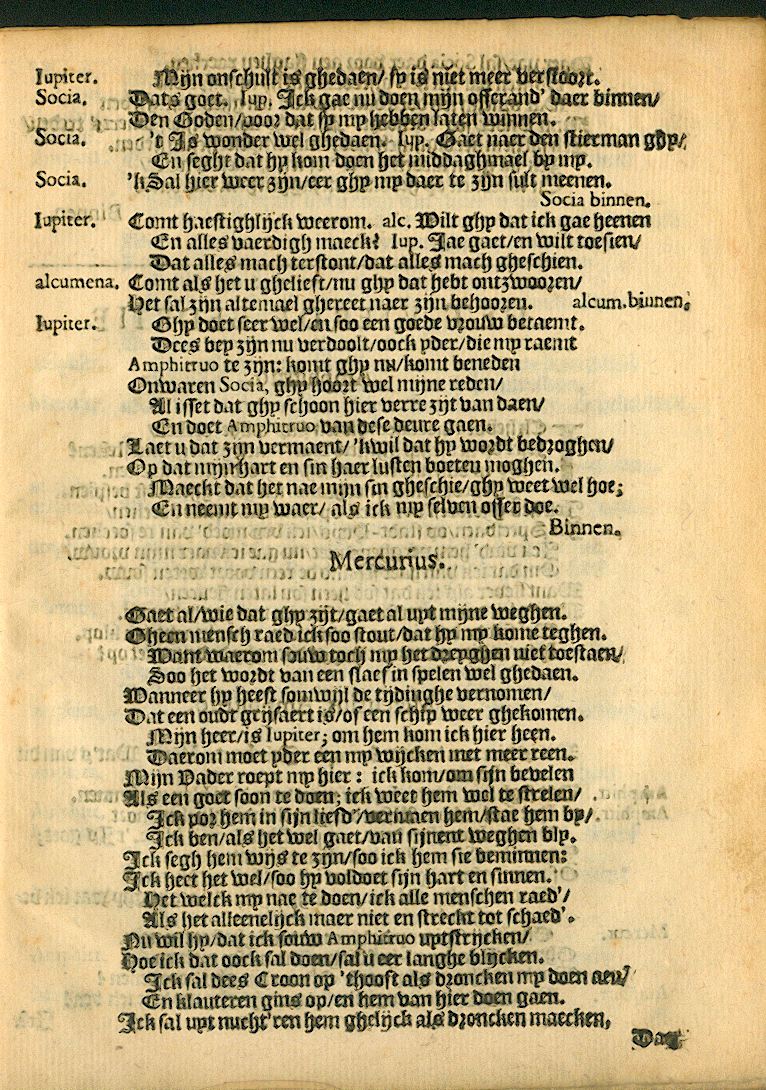 Iupiter. Mijn onschult is ghedaen/ sy is niet meer verstoort.
Socia. Dats goet. Iup. Ick gae nu doen mijn offerand' daer binnen/
Den Goden/voor dat sy my hebben laten winnen.
Socia. 't Is wonder wel ghedaen. Iup. Gaet naer den stierman ghy/
En seght dat hy kom doen het middaghmael by my.
Socia. 'k Sal hier weer zijn/eer ghy my daer te zijn sult meenen.
Socia binnen.
Iupiter. Comt haestighlijck weerom. alc. Wilt ghy dat ick gae heenen
En alles vaerdigh maeck? Iup. Jae gaet/en wilt toesien/
Dat alles mach terstont/dat alles mach gheschien.
alcumena. Comt als het u ghelieft/nu ghy dat hebt ontzwooren/
Het sal zijn altemael ghereet naer zijn behooren. alcum.binnen.
Iupiter. Ghy doet seer wel/en soo een goede vrouw betaemt.
Dees bey zijn nu verdoolt/oock yder/die my raemt
Amphitruo te zijn: komt ghy nu/komt beneden
Onwaren Socia, ghy hoort wel mijne reden/
Al isset dat ghy schoon hier verre zijt van daen/
En doet Amphitruo van dese deure gaen.
Laet u dat zijn vermaent/'kwil dat hy wordt bedroghen/
Op dat mijn hart en sin haer lusten boeten moghen.
Maeckt dat het nae mijn sin gheschie/ghy weet wel hoe;
En neemt my waer/ als ick my selven offer doe.
Binnen.
Mercurius.
Gaet al/wie dat ghy zijt/gaet al uyt mijne weghen.
Gheen mensch raed ick soo stout/dat hy my kome teghen.
Want waerom souw toch my het dreyghen niet toestaen/
Soo het wordt van een slaef in spelen wel ghedaen.
Wanneer hy heest somwijl de tijdinghe vernomen/
Dat een oudt grijsaert is/of een schip weer ghekomen.
Mijn heer/is Iupiter; om hem kom ick hier heen.
Daerom moet yder een my wijcken met meer reen.
Mijn Vader roept my hier : ick kom/om sijn bevelen
Als een goet soon te doen; ick weet hem wel te strelen/
Ick por hem in sijn liefd'/vermaen hem/stae hem by/
Ick ben/als het wel gaet/van sijnent weghen bly.
Ick segh hem wijs te zijn/soo ick hem sie beminnen:
Ick heet het wel/soo hy voldoet sijn hart en sinnen.
Het welck my nae te doen/ick alle menschen raed'/
Als het alleenelijck maer niet en streckt tot schaed'.
Nu wil hy/dat ick souw Amphitruo uytstrijcken/
Hoe ick dat oock sal doen/sal u eer langhe blijcken.
Ick sal dees Croon op 'thooft als droncken my doen aen/
En klauteren gins op/en hem van hier doen gaen.
Ick sal uyt nucht'ren hem ghelijck als droncken maecken,
Dat